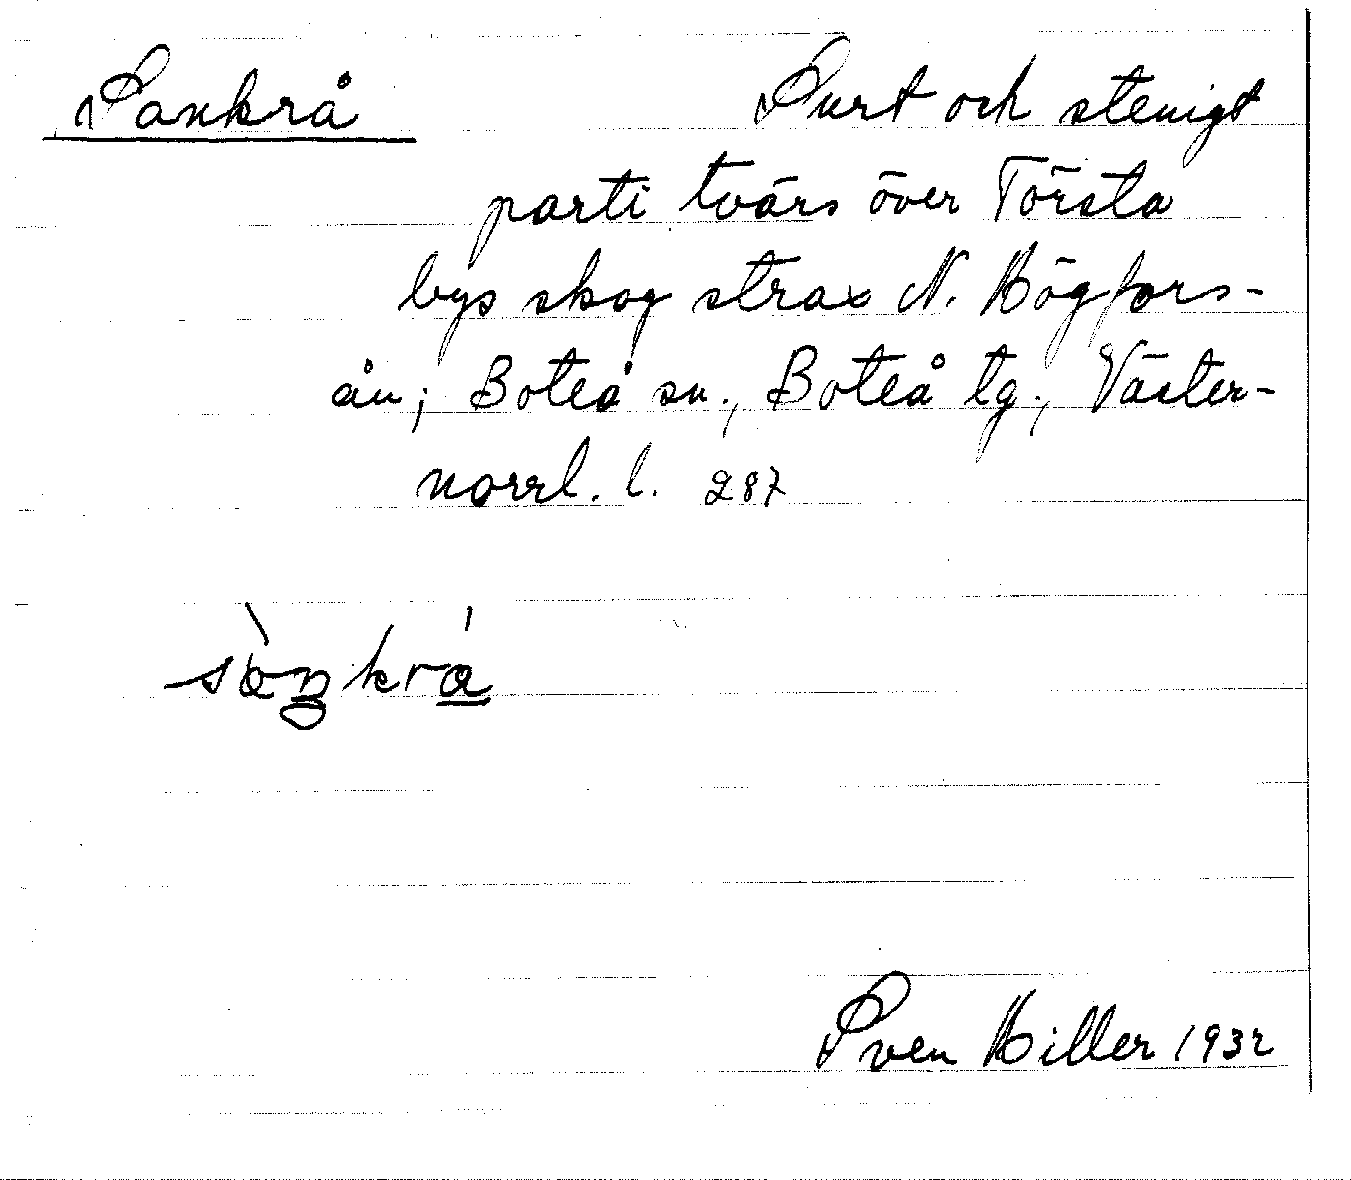 Sankrå Surt och stenigt
parti tvärs över Törsta
bys skog strax N. Högfors-
ån; Boteå sn., Boteå tg., Väster-
norrl. l. 287
sàŋkrá
Sven Hiller 1932